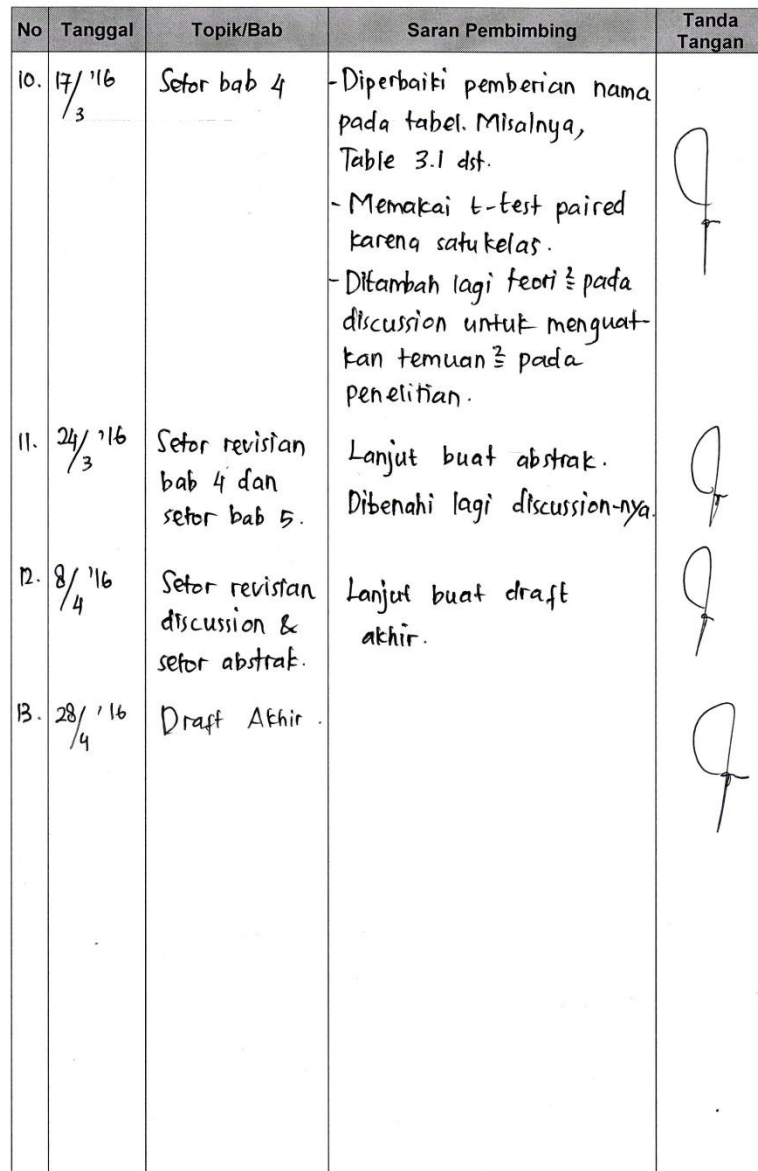 No Tanggal Topik/Bab Saran Pembimbing Tanda Tangan
10. 17/3 '16 Setor bab 4 - Diperbaiki pemberian nama
pada tabel. Misalnya,
Table 3.1 dst.
- Memakai t-test paired
karena satu kelas.
- Ditambah lagi teori² pada
discussion untuk menguat-
kan temuan² pada
penelitian.
11. 24/3 '16 Setor revisian Lanjut buat abstrak.
bab 4 dan Dibenahi lagi discussion-nya.
setor bab 5.
12. 8/4 '16 Setor revisian Lanjut buat draft
discussion & akhir.
setor abstrak.
13. 28/4 '16 Draft Akhir.